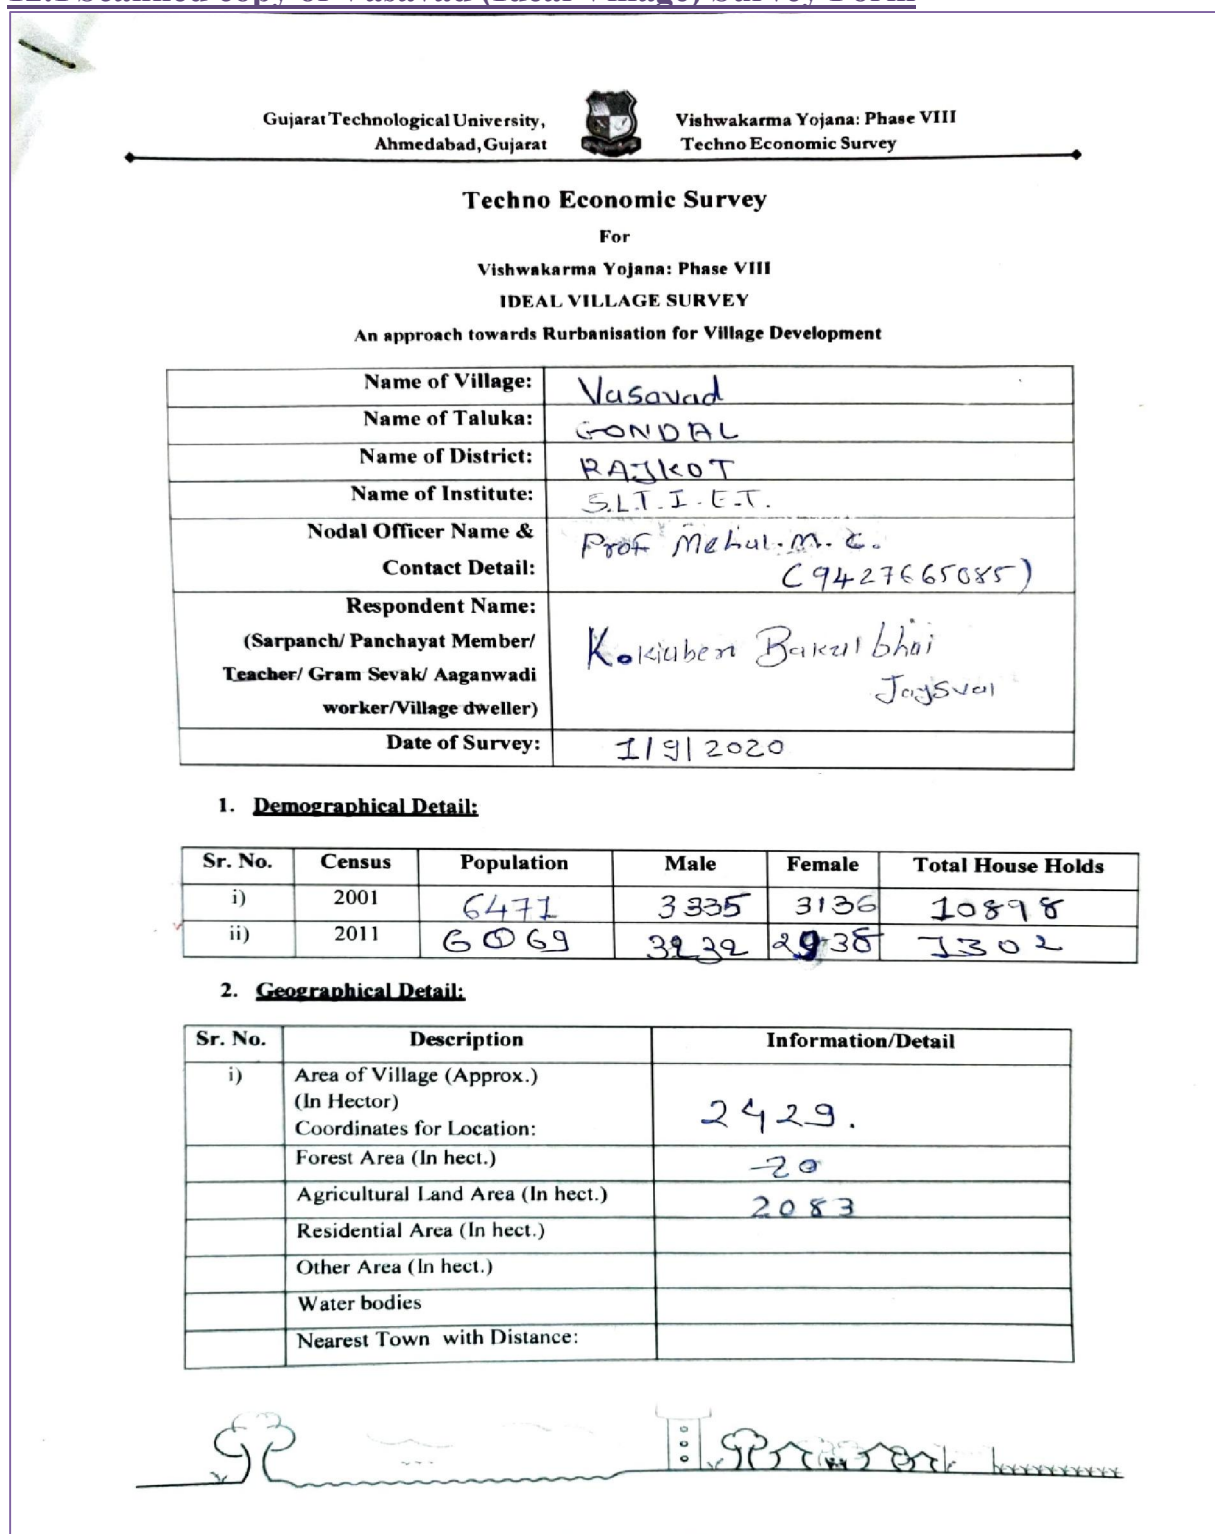 12.1 Scanned copy of Vasavad (Ideal Village) Survey Form
Gujarat Technological University,
Ahmedabad, Gujarat
Vishwakarma Yojana: Phase VIII
Techno Economic Survey
Techno Economic Survey
For
Vishwakarma Yojana: Phase VIII
IDEAL VILLAGE SURVEY
An approach towards Rurbanisation for Village Development
Name of Village: Vasavad
Name of Taluka: GONDAL
Name of District: RAJKOT
Name of Institute: S.L.T.I.E.T.
Nodal Officer Name & Prof Mehul.M.C.
Contact Detail: (9427665085)
Respondent Name:
(Sarpanch/ Panchayat Member/ Kokiaben Bakulbhai
Teacher/ Gram Sevak/ Aaganwadi Jaysval
worker/Village dweller)
Date of Survey: 1/9/2020
1. Demographical Detail:
Sr. No. Census Population Male Female Total House Holds
i) 2001 6471 3335 3136 10898
ii) 2011 6069 3232 2938 1302
2. Geographical Detail:
Sr. No. Description Information/Detail
i) Area of Village (Approx.)
(In Hector) 2429.
Coordinates for Location:
Forest Area (In hect.) 20
Agricultural Land Area (In hect.) 2083
Residential Area (In hect.)
Other Area (In hect.)
Water bodies
Nearest Town with Distance: